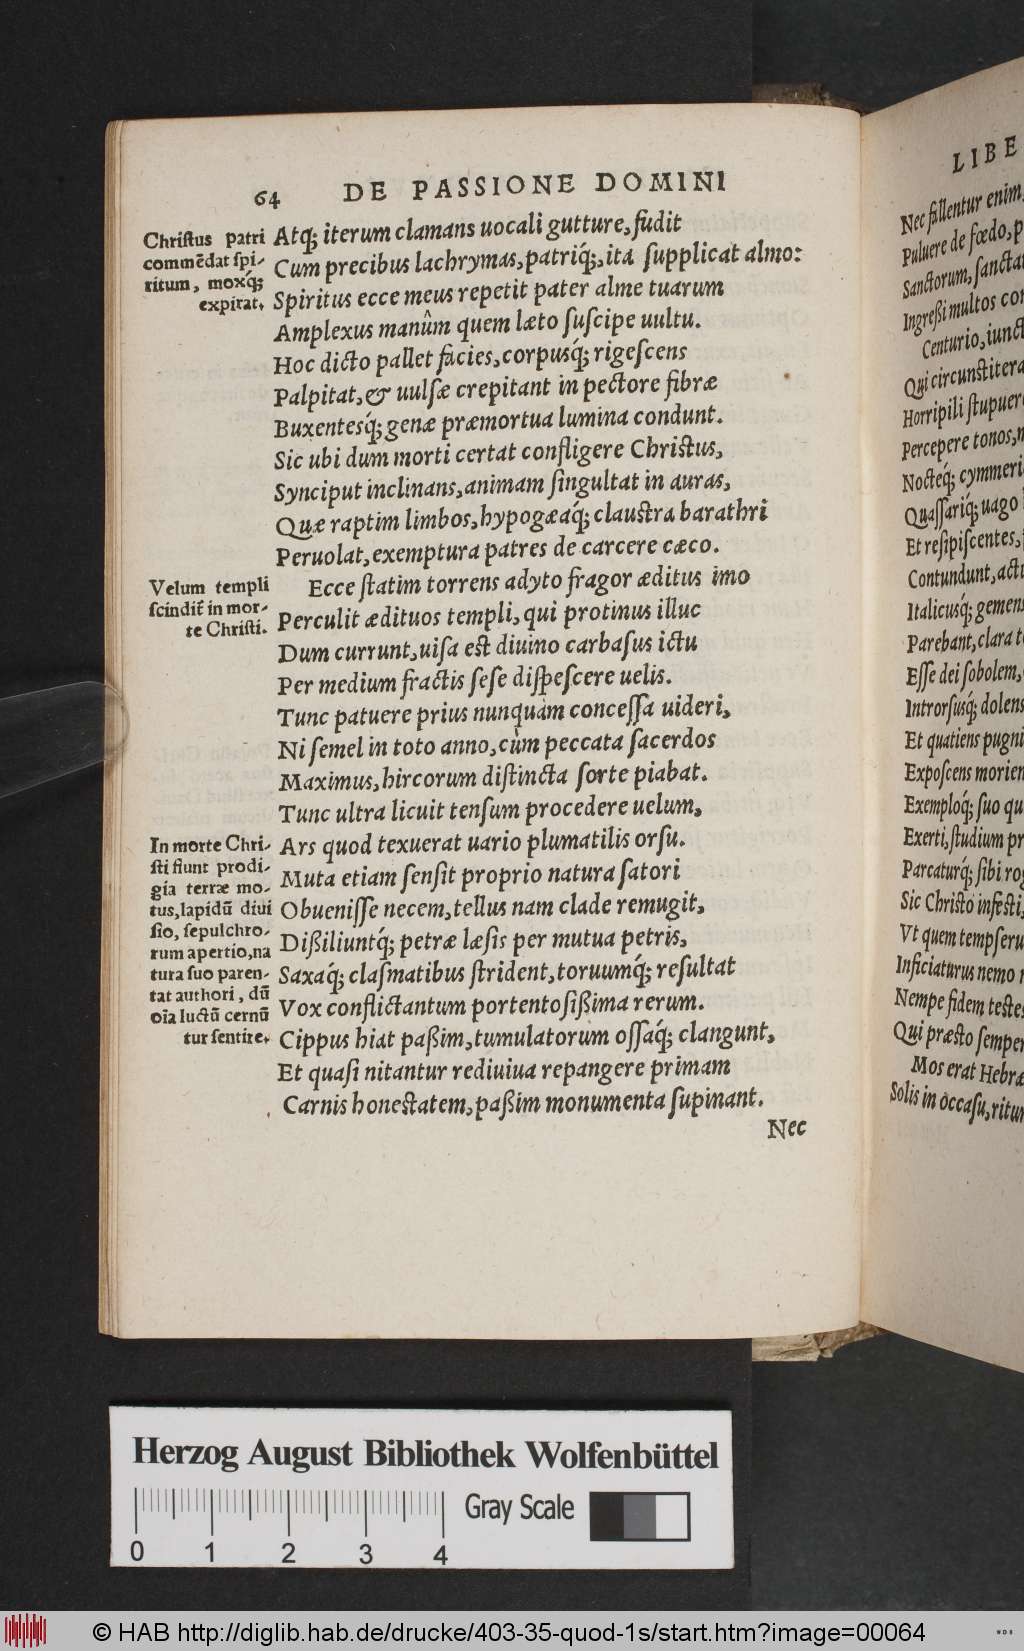 64 DE PASSIONE DOMINI
Christus patri
commẽdat spi-
ritum, moxq́;
expirat.
Atq; iterum clamans uocali gutture, fudit
Cum precibus lachrymas, patriq́;, ita supplicat almo:
Spiritus ecce meus repetit pater alme tuarum
Amplexus manûm quem læto suscipe uultu.
Hoc dicto pallet facies, corpusq́; rigescens
Palpitat, & uulsæ crepitant in pectore fibræ
Buxentesq́; genæ præmortua lumina condunt.
Sic ubi dum morti certat confligere Christus,
Synciput inclinans, animam singultat in auras,
Quæ raptim limbos, hypogæaq́; claustra barathri
Peruolat, exemptura patres de carcere cæco.
Velum templi
scindit̃ in mor-
te Christi.
Ecce statim torrens adyto fragor æditus imo
Perculit ædituos templi, qui protinus illuc
Dum currunt, uisa est diuino carbasus ictu
Per medium fractis sese dispescere uelis.
Tunc patuere prius nunquàm concessa uideri,
Ni semel in toto anno, cùm peccata sacerdos
Maximus, hircorum distincta sorte piabat.
Tunc ultra licuit tensum procedere uelum,
Ars quod texuerat uario plumatilis orsu.
In morte Chri-
sti fiunt prodi-
gia terræ mo-
tus, lapidũ diui
sio, sepulchro-
rum apertio, na
tura suo paren-
tat authori, dũ
oĩa luctũ cernũ
tur sentire.
Muta etiam sensit proprio natura satori
Obuenisse necem, tellus nam clade remugit,
Dißiliuntq́; petræ læsis per mutua petris,
Saxaq́; clasmatibus strident, toruumq́; resultat
Vox conflictantum portentosißima rerum.
Cippus hiat paßim, tumulatorum ossaq́; clangunt,
Et quasi nitantur rediuiua repangere primam
Carnis honestatem, paßim monumenta supinant.
Nec
LIBE
Nec fallentur enim,
Puluere de fœdo, p
Sanctorum, sancta
Ingreßi multos con
Centurio, iunct
Qui circunstitera
Horripili stupuer
Percepere tonos, n
Nocteq́; cymmeri
Quassariq́; uago
Et resipiscentes,
Contundunt, actu
Italicusq́; gemens
Parebant, clara t
Esse dei sobolem,
Introrsusq́; dolens
Et quatiens pugni
Exposcens morien
Exemploq́; suo qu
Exerti, studium pr
Parcaturq́; sibi rog
Sic Christo infesti,
Vt quem tempseru
Inficiaturus nemo
Nempe fidem testes
Qui præsto semper
Mos erat Hebræ
Solis in occasu, ritu
Herzog August Bibliothek Wolfenbüttel
Gray Scale
0 1 2 3 4
© HAB http://diglib.hab.de/drucke/403-35-quod-1s/start.htm?image=00064